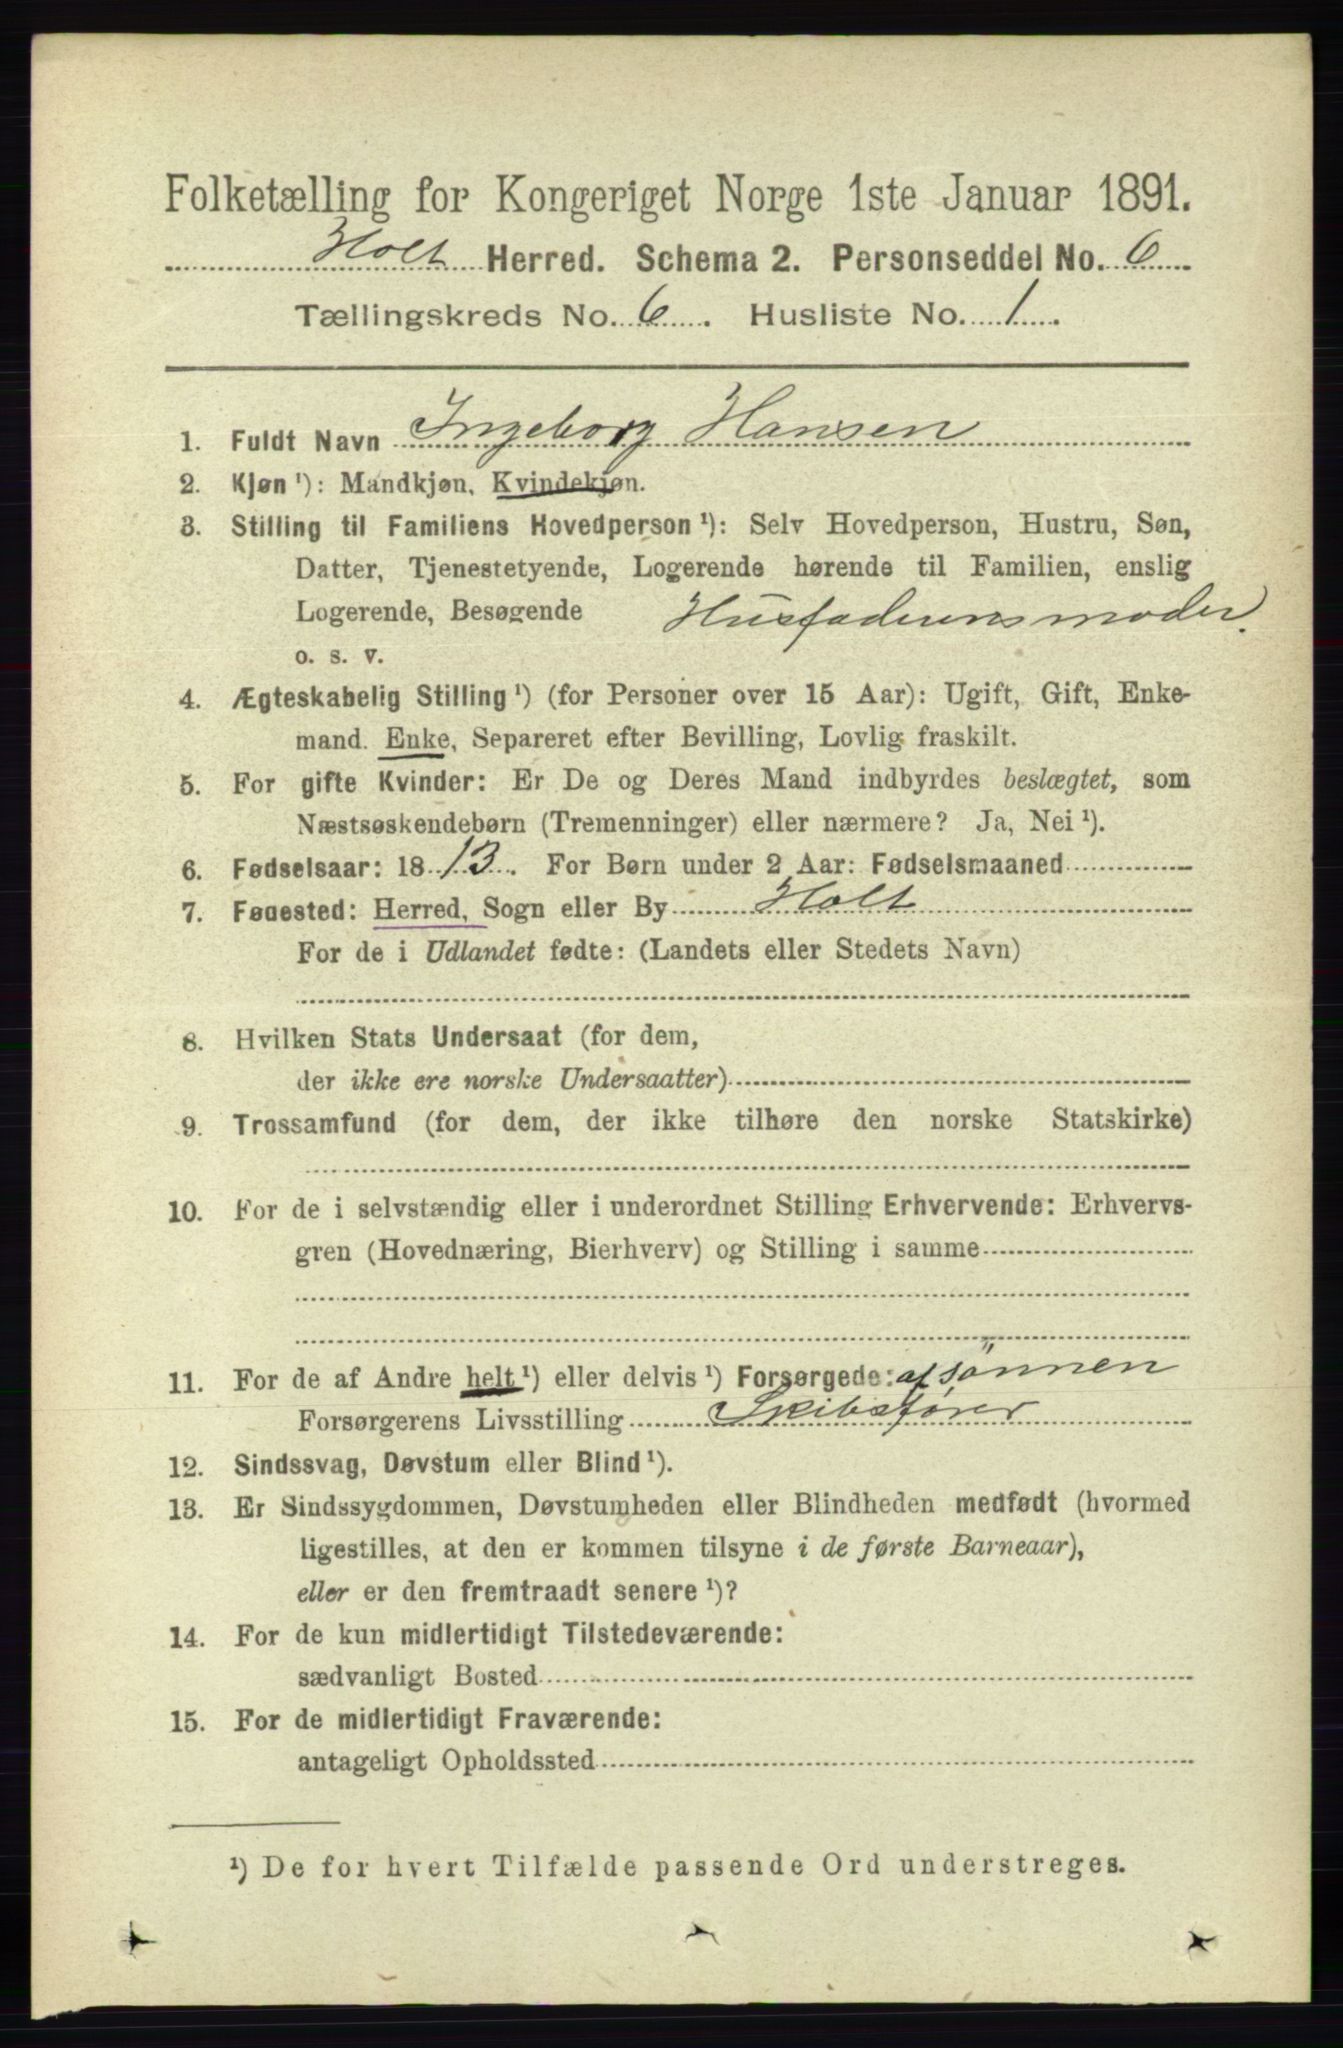 Folketælling for Kongeriget Norge 1ste Januar 1891.
Holt Herred. Schema 2. Personseddel No. 6
Tællingskreds No. 6. Husliste No. 1.
1. Fuldt Navn Ingeborg Hansen
2. Kjøn ¹): Mandkjøn, Kvindekjøn.
3. Stilling til Familiens Hovedperson ¹): Selv Hovedperson, Hustru, Søn,
Datter, Tjenestetyende, Logerende hørende til Familien, enslig
Logerende, Besøgende Husfaderens moder.
o. s. v.
4. Ægteskabelig Stilling ¹) (for Personer over 15 Aar): Ugift, Gift, Enke-
mand. Enke, Separeret efter Bevilling, Lovlig fraskilt.
5. For gifte Kvinder: Er De og Deres Mand indbyrdes beslægtet, som
Næstsøskendebørn (Tremenninger) eller nærmere? Ja, Nei ¹).
6. Fødselsaar: 1813. For Børn under 2 Aar: Fødselsmaaned
7. Fødested: Herred, Sogn eller By Holt
For de i Udlandet fødte: (Landets eller Stedets Navn)
8. Hvilken Stats Undersaat (for dem,
der ikke ere norske Undersaatter)
9. Trossamfund (for dem, der ikke tilhøre den norske Statskirke)
10. For de i selvstændig eller i underordnet Stilling Erhvervende: Erhvervs-
gren (Hovednæring, Bierhverv) og Stilling i samme
11. For de af Andre helt ¹) eller delvis ¹) Forsørgede: af sönnen
Forsørgerens Livsstilling Skibsfører
12. Sindssvag, Døvstum eller Blind ¹).
13. Er Sindssygdommen, Døvstumheden eller Blindheden medfødt (hvormed
ligestilles, at den er kommen tilsyne i de første Barneaar),
eller er den fremtraadt senere ¹)?
14. For de kun midlertidigt Tilstedeværende:
sædvanligt Bosted
15. For de midlertidigt Fraværende:
antageligt Opholdssted
¹) De for hvert Tilfælde passende Ord understreges.